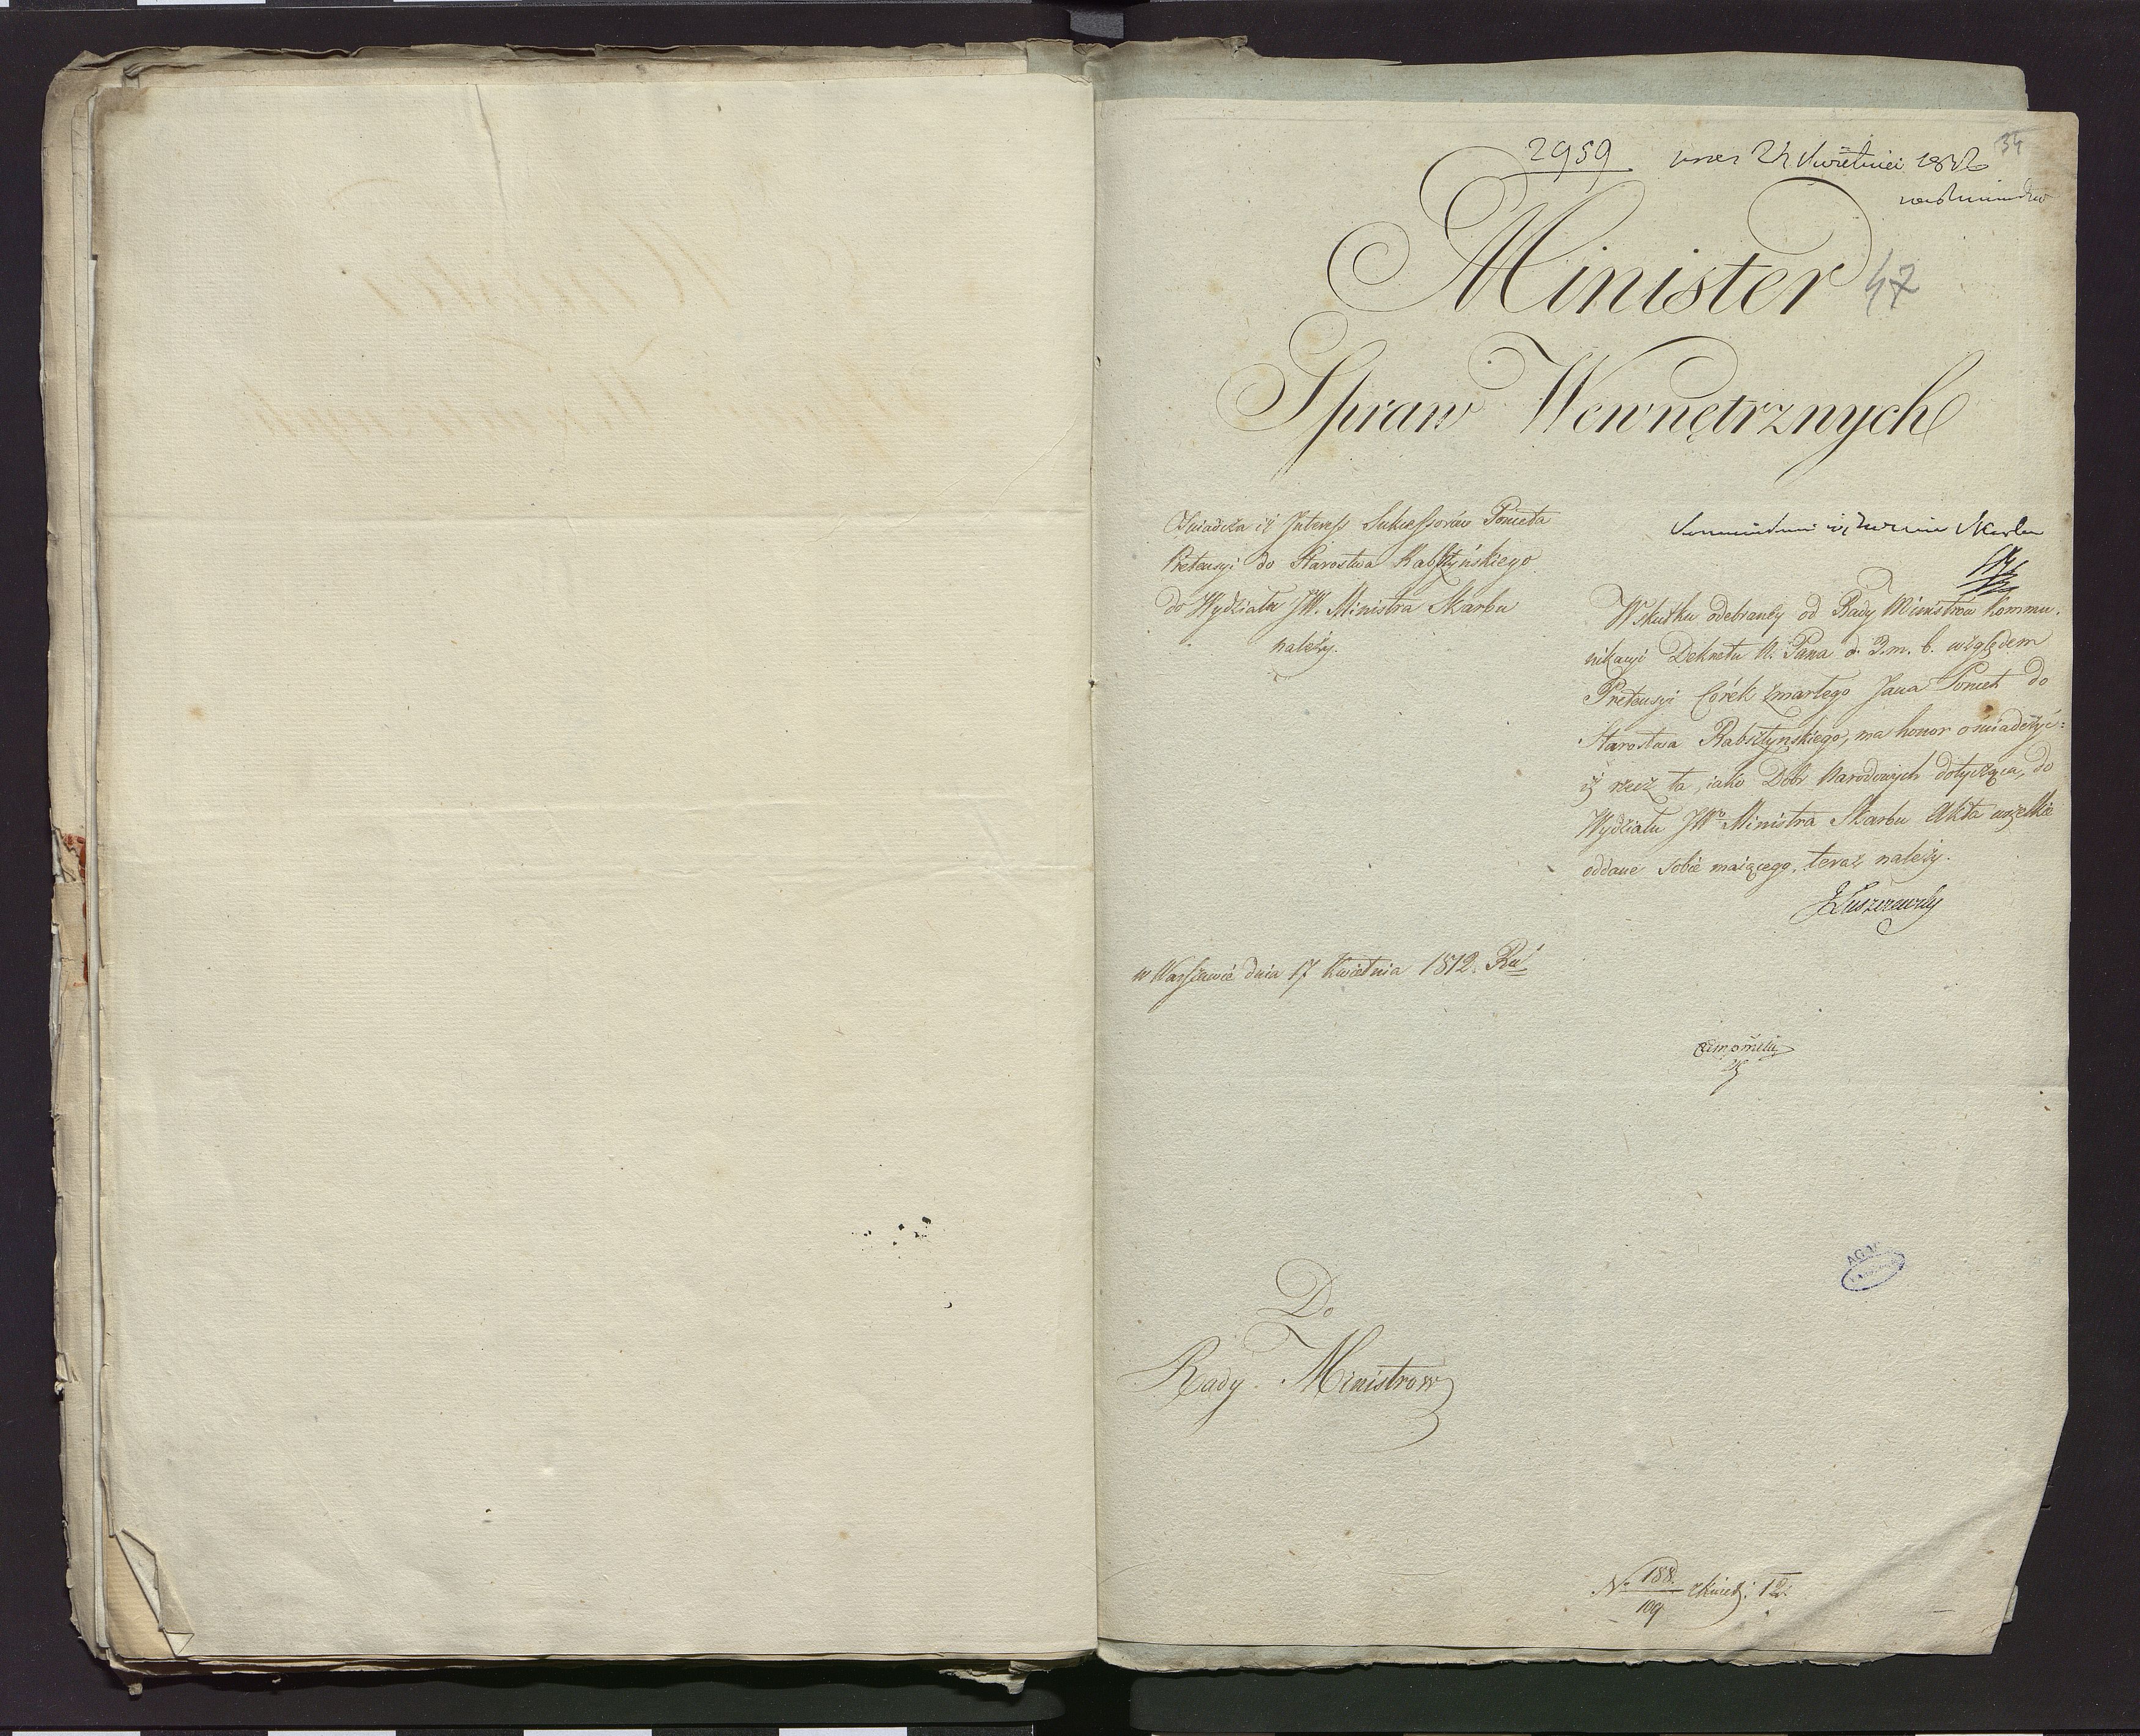 34
2959 24 Kwietnia 1812
Minister
47
Spraw Wewnętrznych
Oświadcza iż Interess Sukcessorów Ponieta
Pretensyi do Starostwa Rabsztyńskiego
do Wydziału JW. Ministra Skarbu
należy.
Skarbu
W skutku odebraney od Rady Ministrow Kommu-
nikacyi Dekretu N. Pana d. 3. m. b. względem
Pretensyi Córek zmarłego Jana Poniet do
Starostwa Rabsztynskiego, ma honor oswiadczyć:
iż rzecz ta, iako Dobr Narodowych dotycząca, do
Wydziału JWo Ministra Skarbu Akta wszelkie
oddane sobie maiącego, teraz należy.
JŁuszczewsky
w Warszawie dnia 17 Kwietnia 1812. Ru
Do
Rady Ministrow
AGAD
No 188/109 Kwiet: 12.